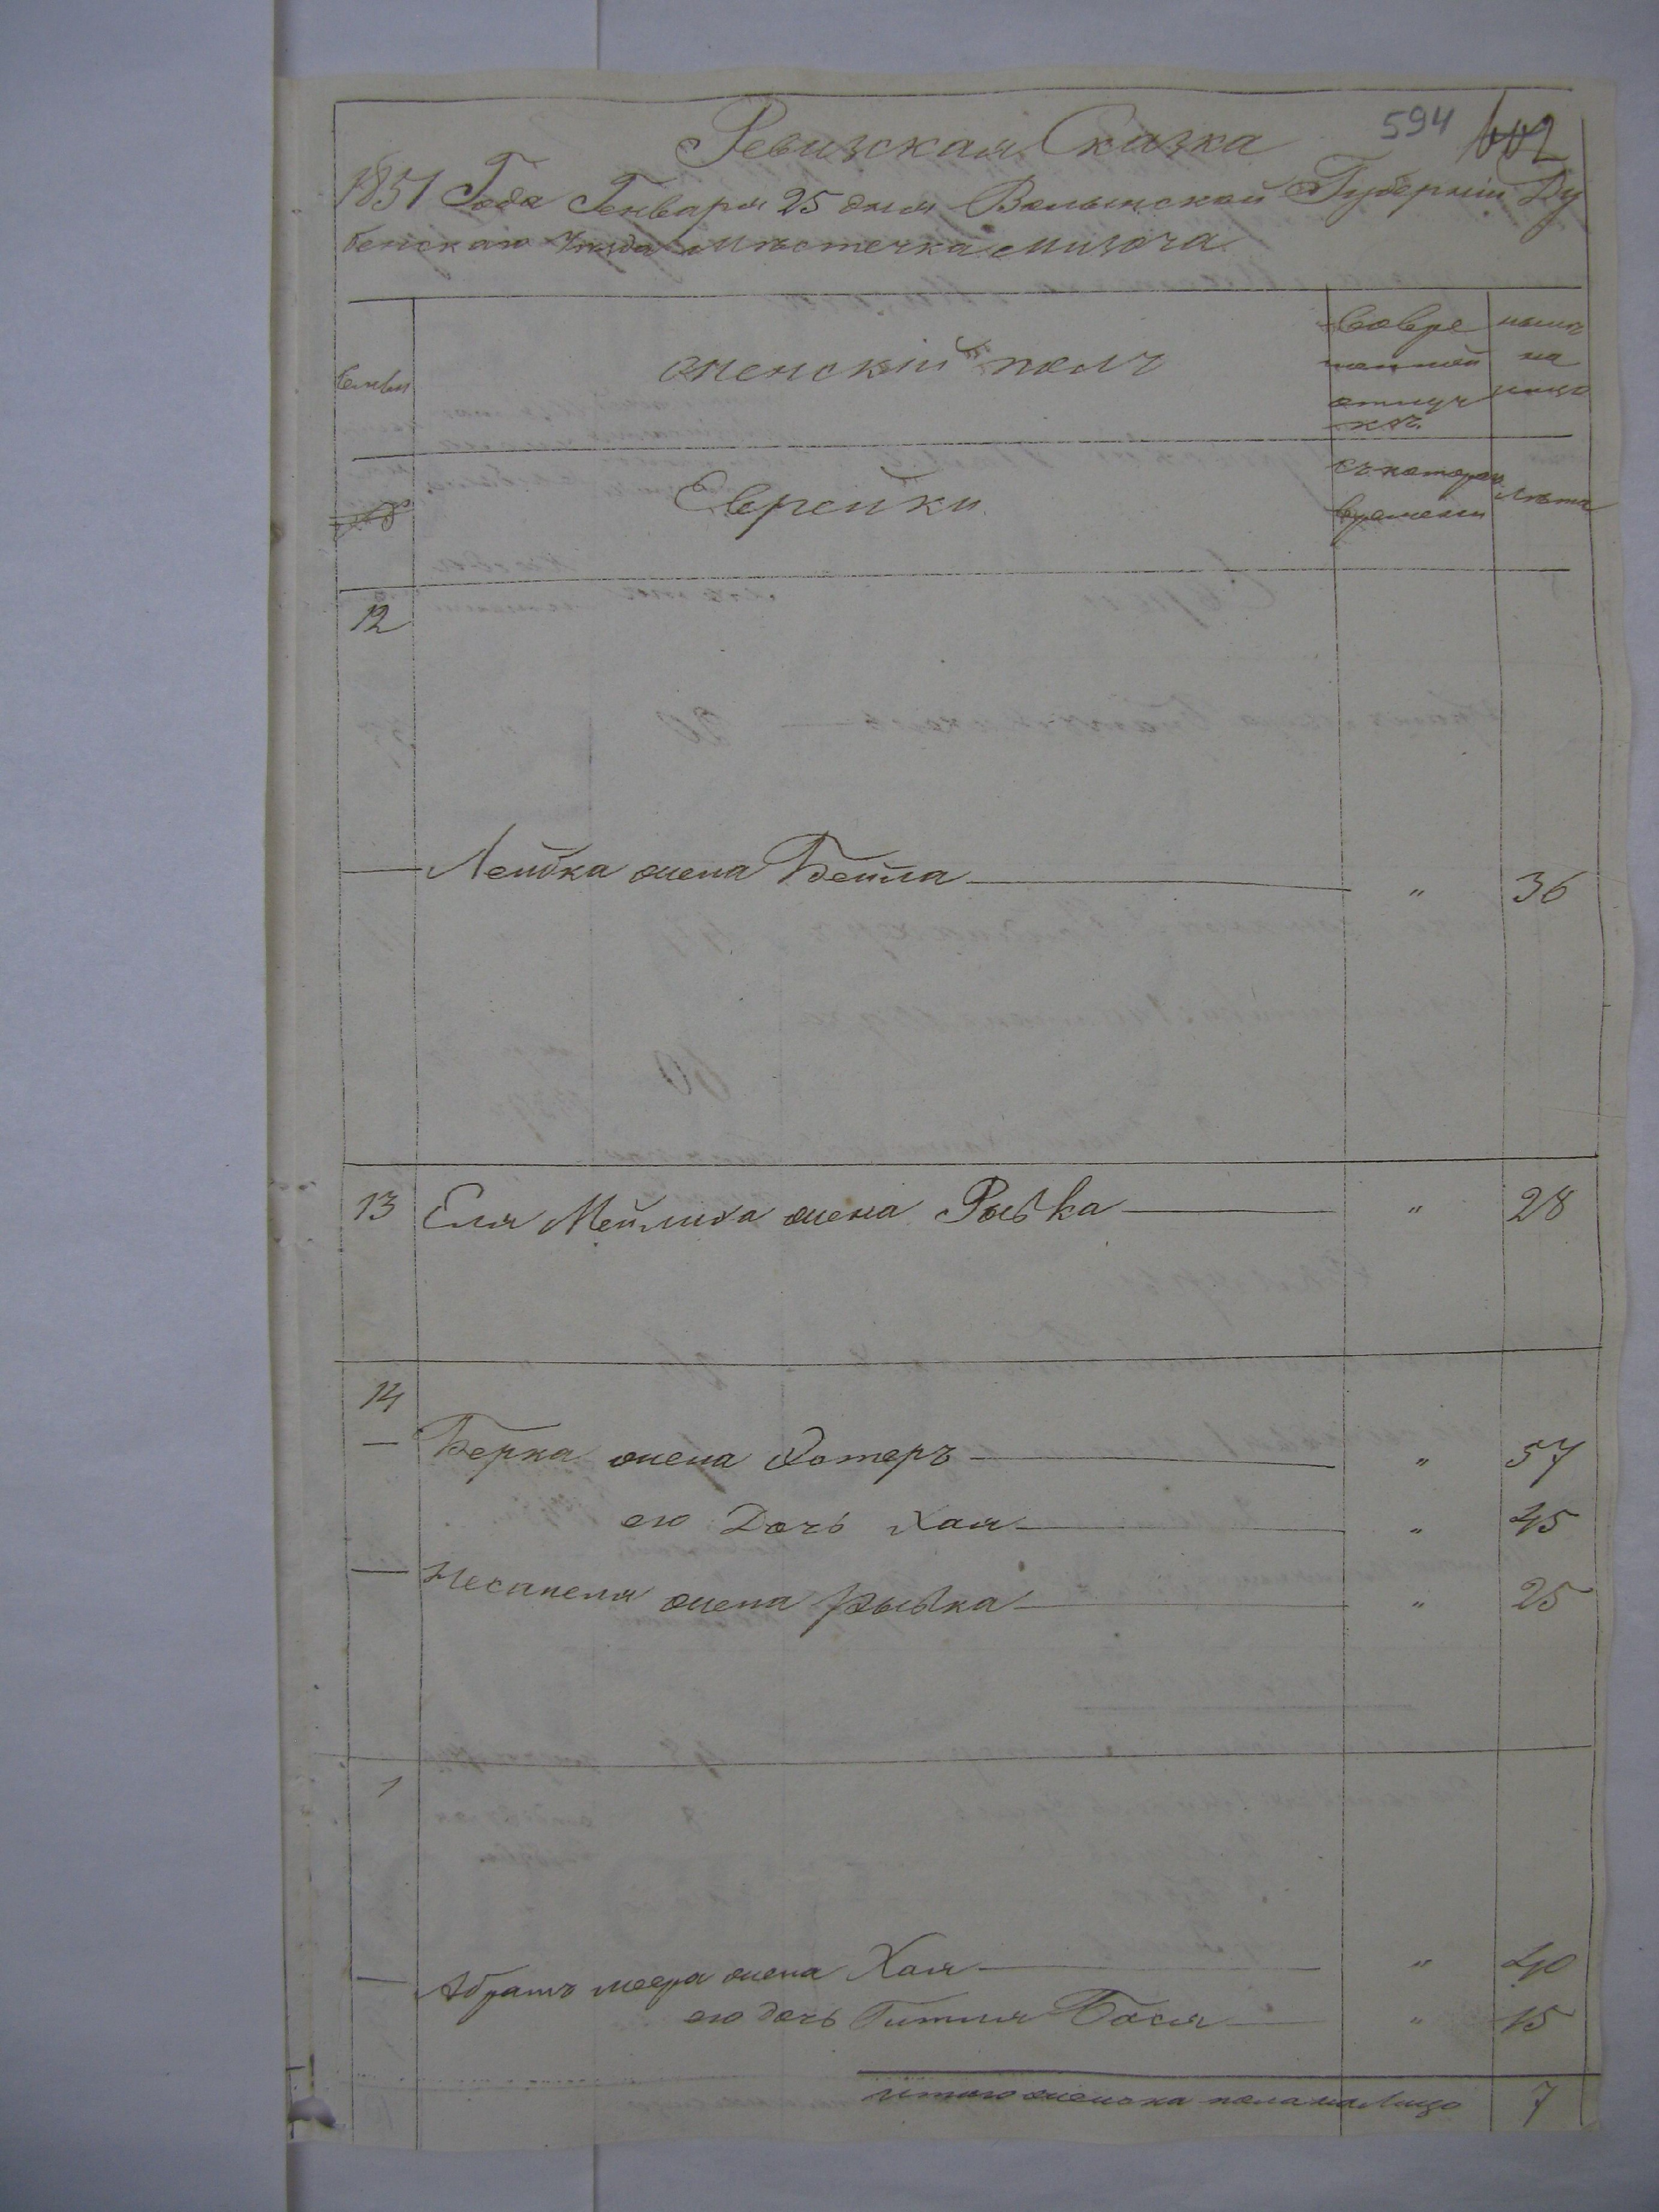 594 602
Ревизская Сказка
1851 Года Генваря 25 дня Волынской Губернии Ду
бенскаго Уезда Местечка Мизоча
Семьи
женский полъ
Во вре
менной
отлуч
ке
ныне
на
лицо
Еврейки
съ котораго
времени
Лета
12
Лейбка жена Бейла " 36
13 Еля Мейлиха жена Рывка " 28
14
Берка жена Эстеръ " 57
его Дочь Хая " 45
жена Рывка " 25
1
Абрамъ Меера жена Хая " 40
его дочь Гитля Бася " 15
итого женска пола на Лицо 7